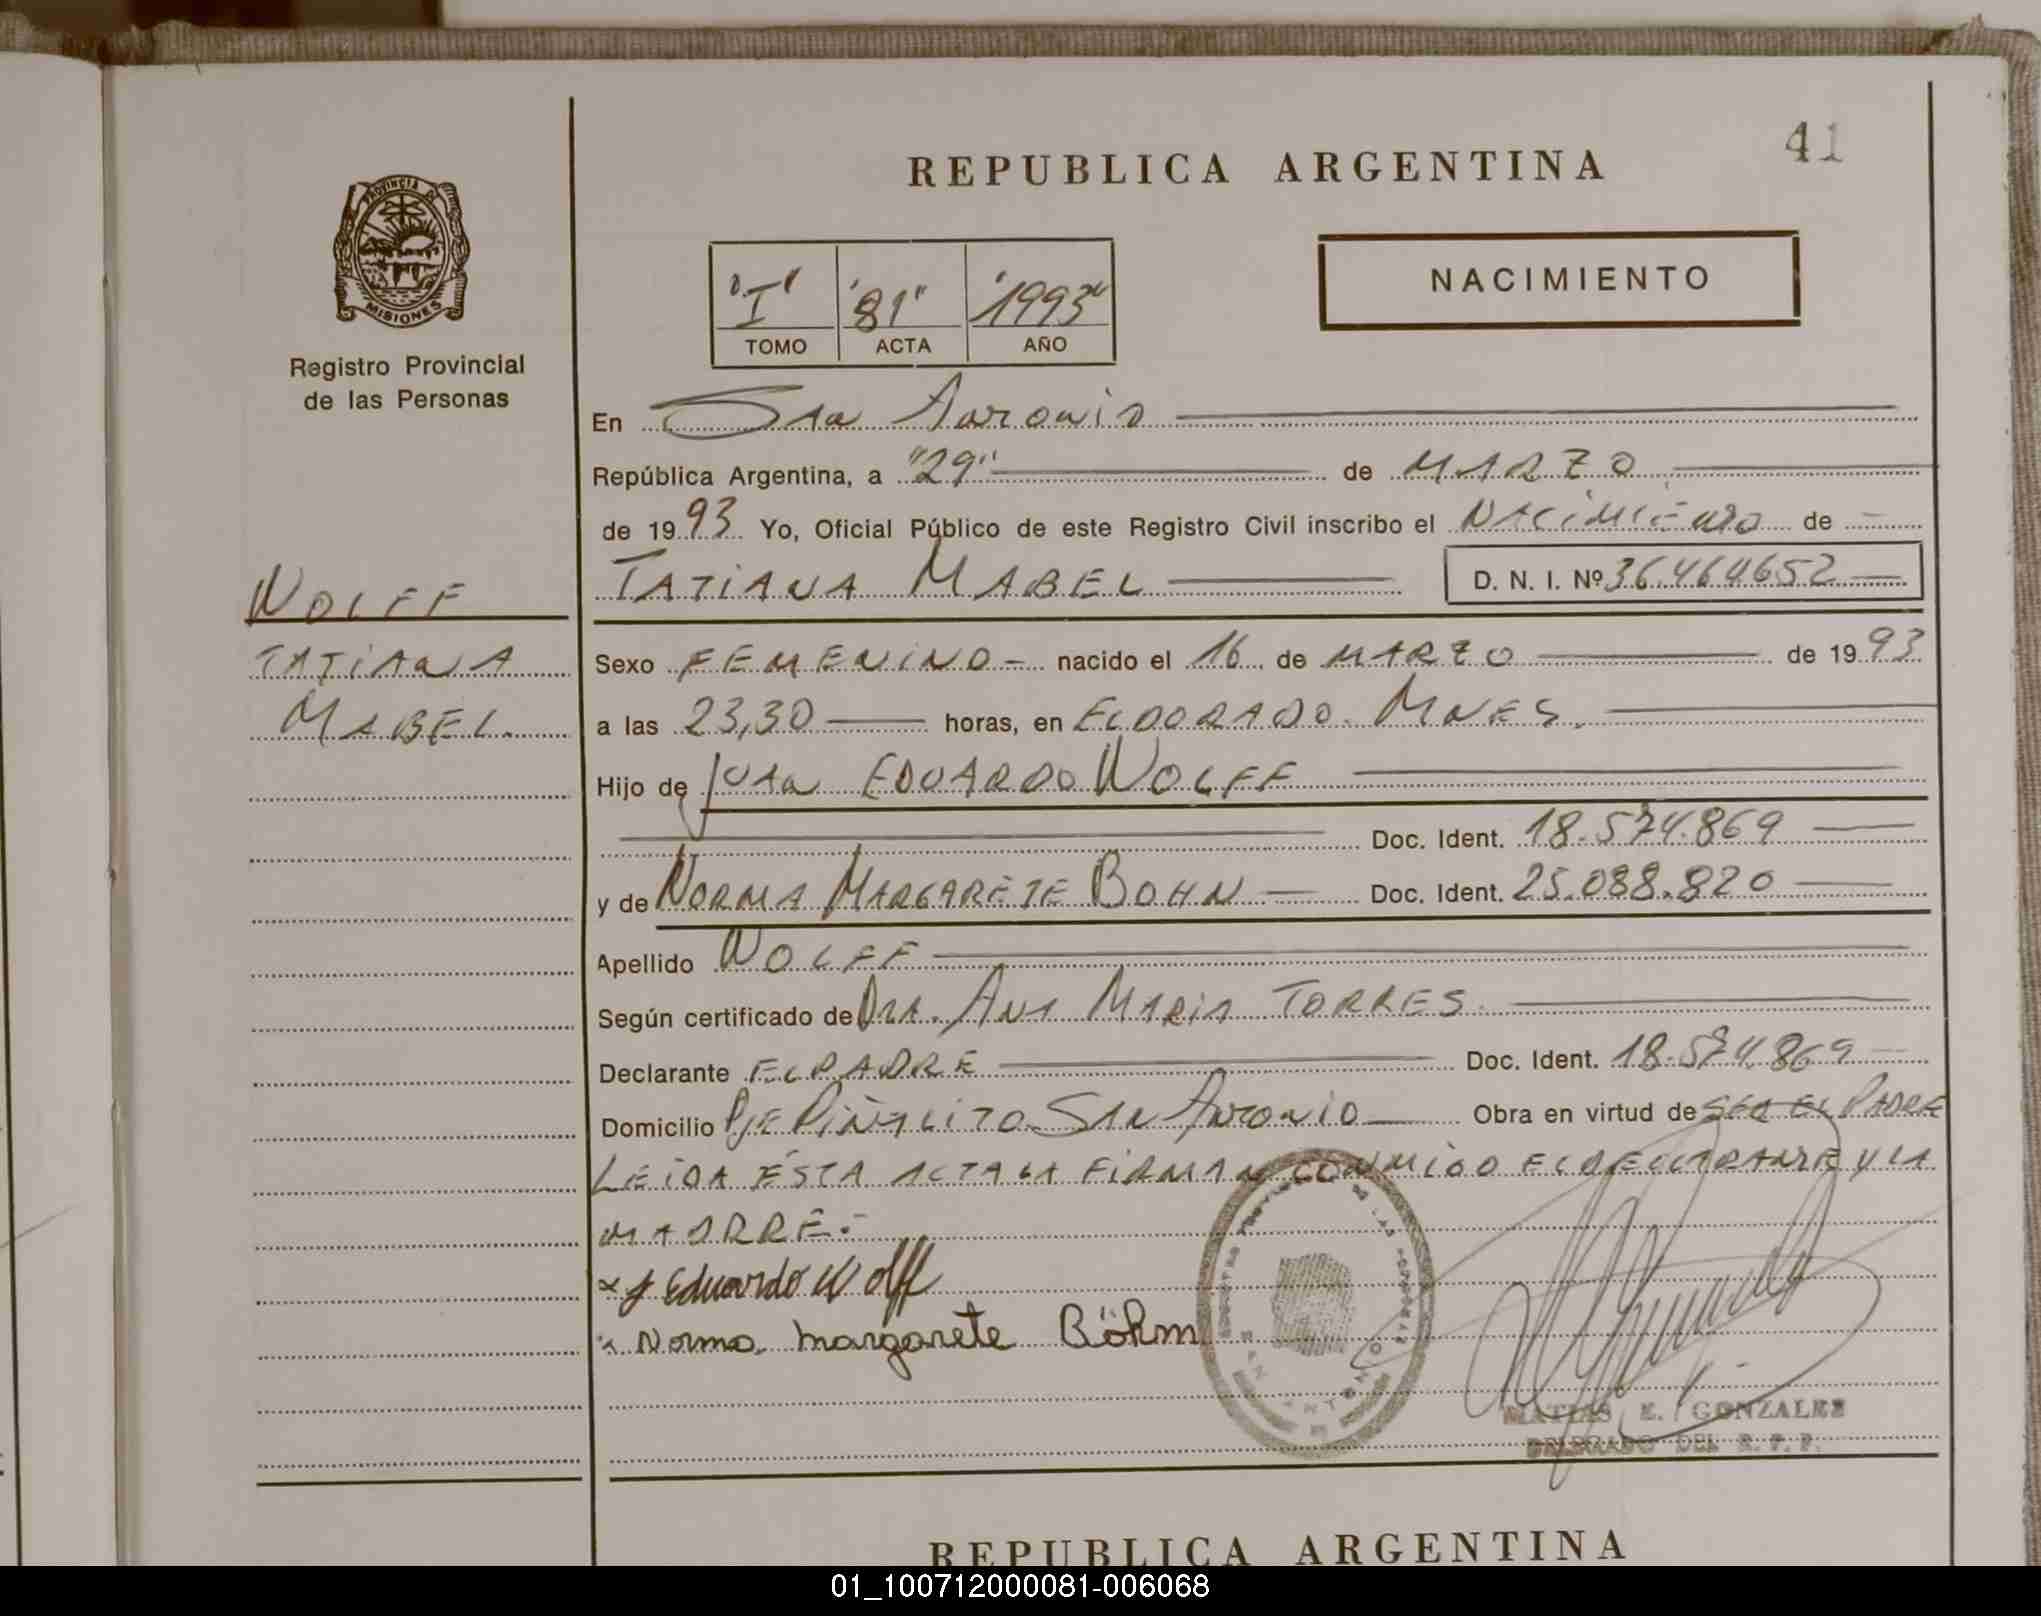 41
REPUBLICA ARGENTINA
PROVINCIA DE
MISIONES
NACIMIENTO
"I" "81" "1993"
TOMO ACTA AÑO
Registro Provincial
de las Personas
En San Antonio
República Argentina, a "29" de MARZO
de 1993 Yo, Oficial Público de este Registro Civil inscribo el NACIMIENTO de
TATIANA MABEL D. N. I. Nº 36.464652
WOLFF
TATIANA
MABEL.
Sexo FEMENINO nacido el 16 de MARZO de 1993
a las 23,30 horas, en ELDORADO. MNES.
Hijo de JUAN EDUARDO WOLFF
Doc. Ident. 18.574.869
y de NORMA MARGARETE BOHN Doc. Ident. 25.088.820
Apellido WOLFF
Según certificado de DRA. ANA MARIA TORRES.
Declarante EL PADRE Doc. Ident. 18.574.869
Domicilio PJE PIÑALITO SAN ANTONIO Obra en virtud de SER EL PADRE
LEIDA ÉSTA ACTA LA FIRMAN CONMIGO EL DECLARANTE Y LA
MADRRE.-
x J Eduardo Wolff
x Norma margarete Böhm
SAN ANTONIO
MATIAS E. GONZALEZ
DELEGADO DEL R. P. P.
REPUBLICA ARGENTINA
01_100712000081-006068